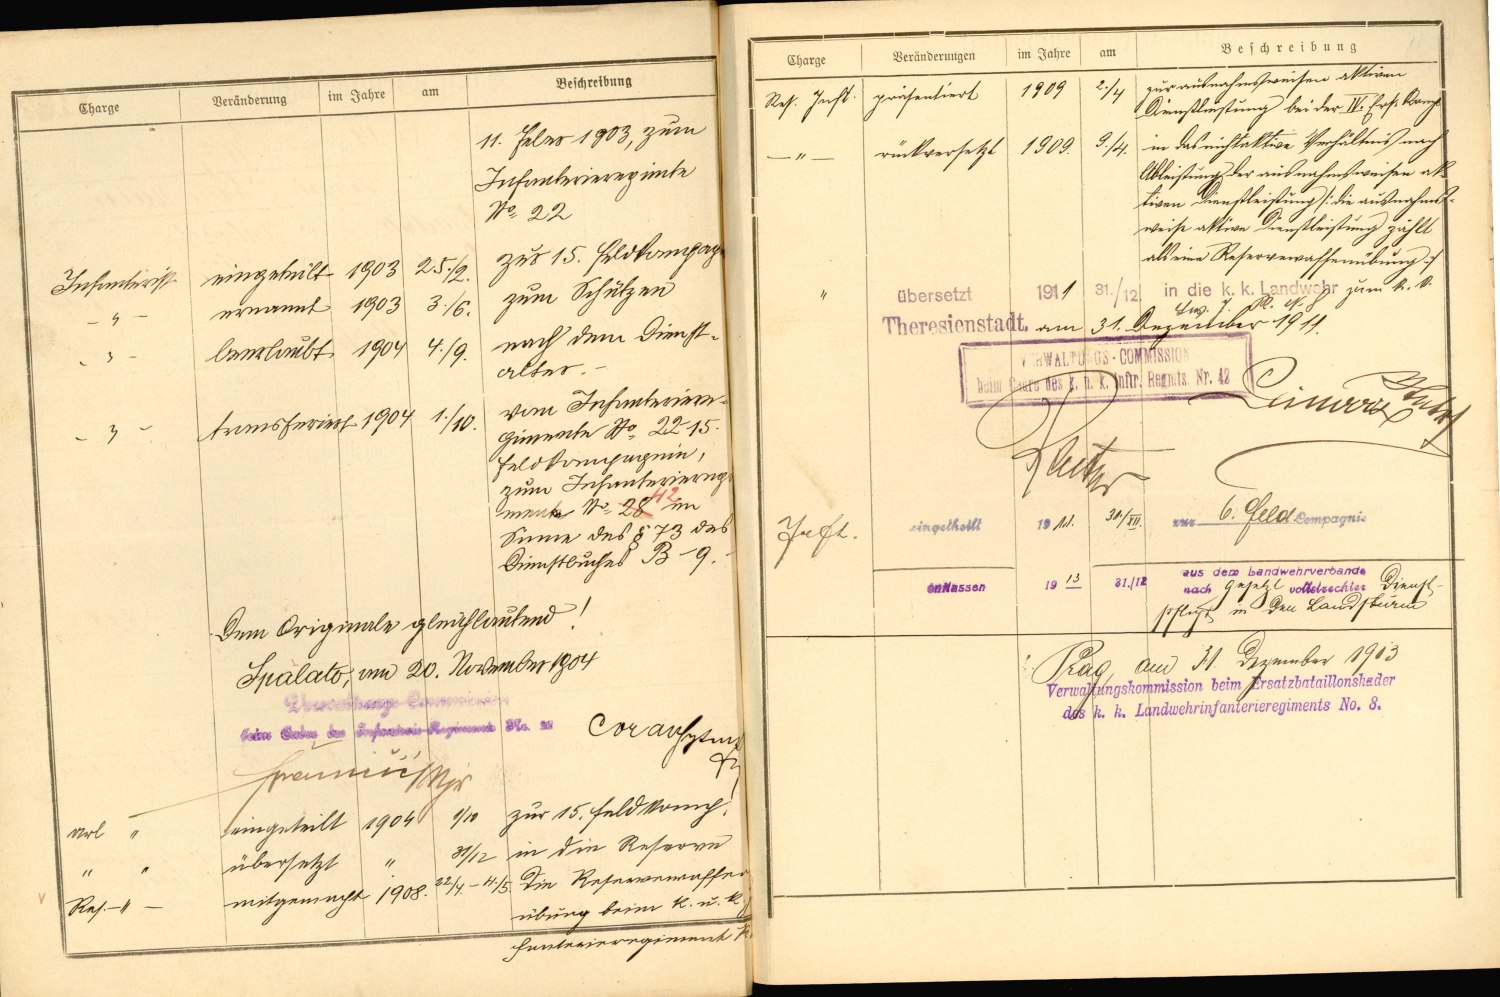 Charge Veränderung im Jahre am Beschreibung
11. Feber 1903, zum
Infanterieregimente
No 22
Infanterist eingeteilt 1903 25./2. zur 15. Feldkompag
– " – ernannt 1903 3./6. zum Schützen
– " – beurlaubt 1904 4./9. nach dem Dienst-
alter. –
– " – transferiert 1904 1./10. vom Infanteriere-
gimente No 22 15.
Feldkompagnie,
zum Infanteriereg
mente No 28 42 im
Sinne des § 73 des
Dienstbuches B – 9. –
Dem Originale gleichlautend!
Spalato, am 20. November 1904
Verwaltungs-Commission
beim Cadre des Infanterie-Regiments No. 22
Mjr
" eingeteilt 1904 1/10 zur 15. Feldkomp.
" " übersetzt " 31/12 in die Reserve
Res. – " – mitgemacht 1908. 22/4 – 4./5. die Reservewaffen
übung beim k. u. k.
fanterieregiment
Charge Veränderungen im Jahre am Beschreibung
Res. Inft. präsentiert 1909 2./4 zur ausnahmsweisen aktiven
Dienstleistung bei der IV. Ers. Komp
– " – rückversetzt 1909. 9./4. in das nichtaktive Verhältnis nach
Ableistung der ausnahmsweisen ak-
tiven Dienstleistung /: die ausnahms-
weise aktive Dienstleistung zählt
als eine Reservewaffenübung :/
" übersetzt 1911 31./12. in die k. k. Landwehr zum k. k.
Lw. J. R. N. 8
Theresienstadt, am 31. Dezember 1911.
VERWALTUNGS-COMMISSION
beim Cadre des k. u. k. Inftr. Regmts. Nr. 42
Inft. eingetheilt 1911. 31./XII. zur 6. Feld Compagnie
entlassen 1913 31./12 aus dem Landwehrverbande
nach gesetzl vollstreckter Dienst-
pflicht in den Landsturm
Prag, am 31. Dezember 1913
Verwaltungskommission beim Ersatzbataillonskader
des k. k. Landwehrinfanterieregiments No. 8.